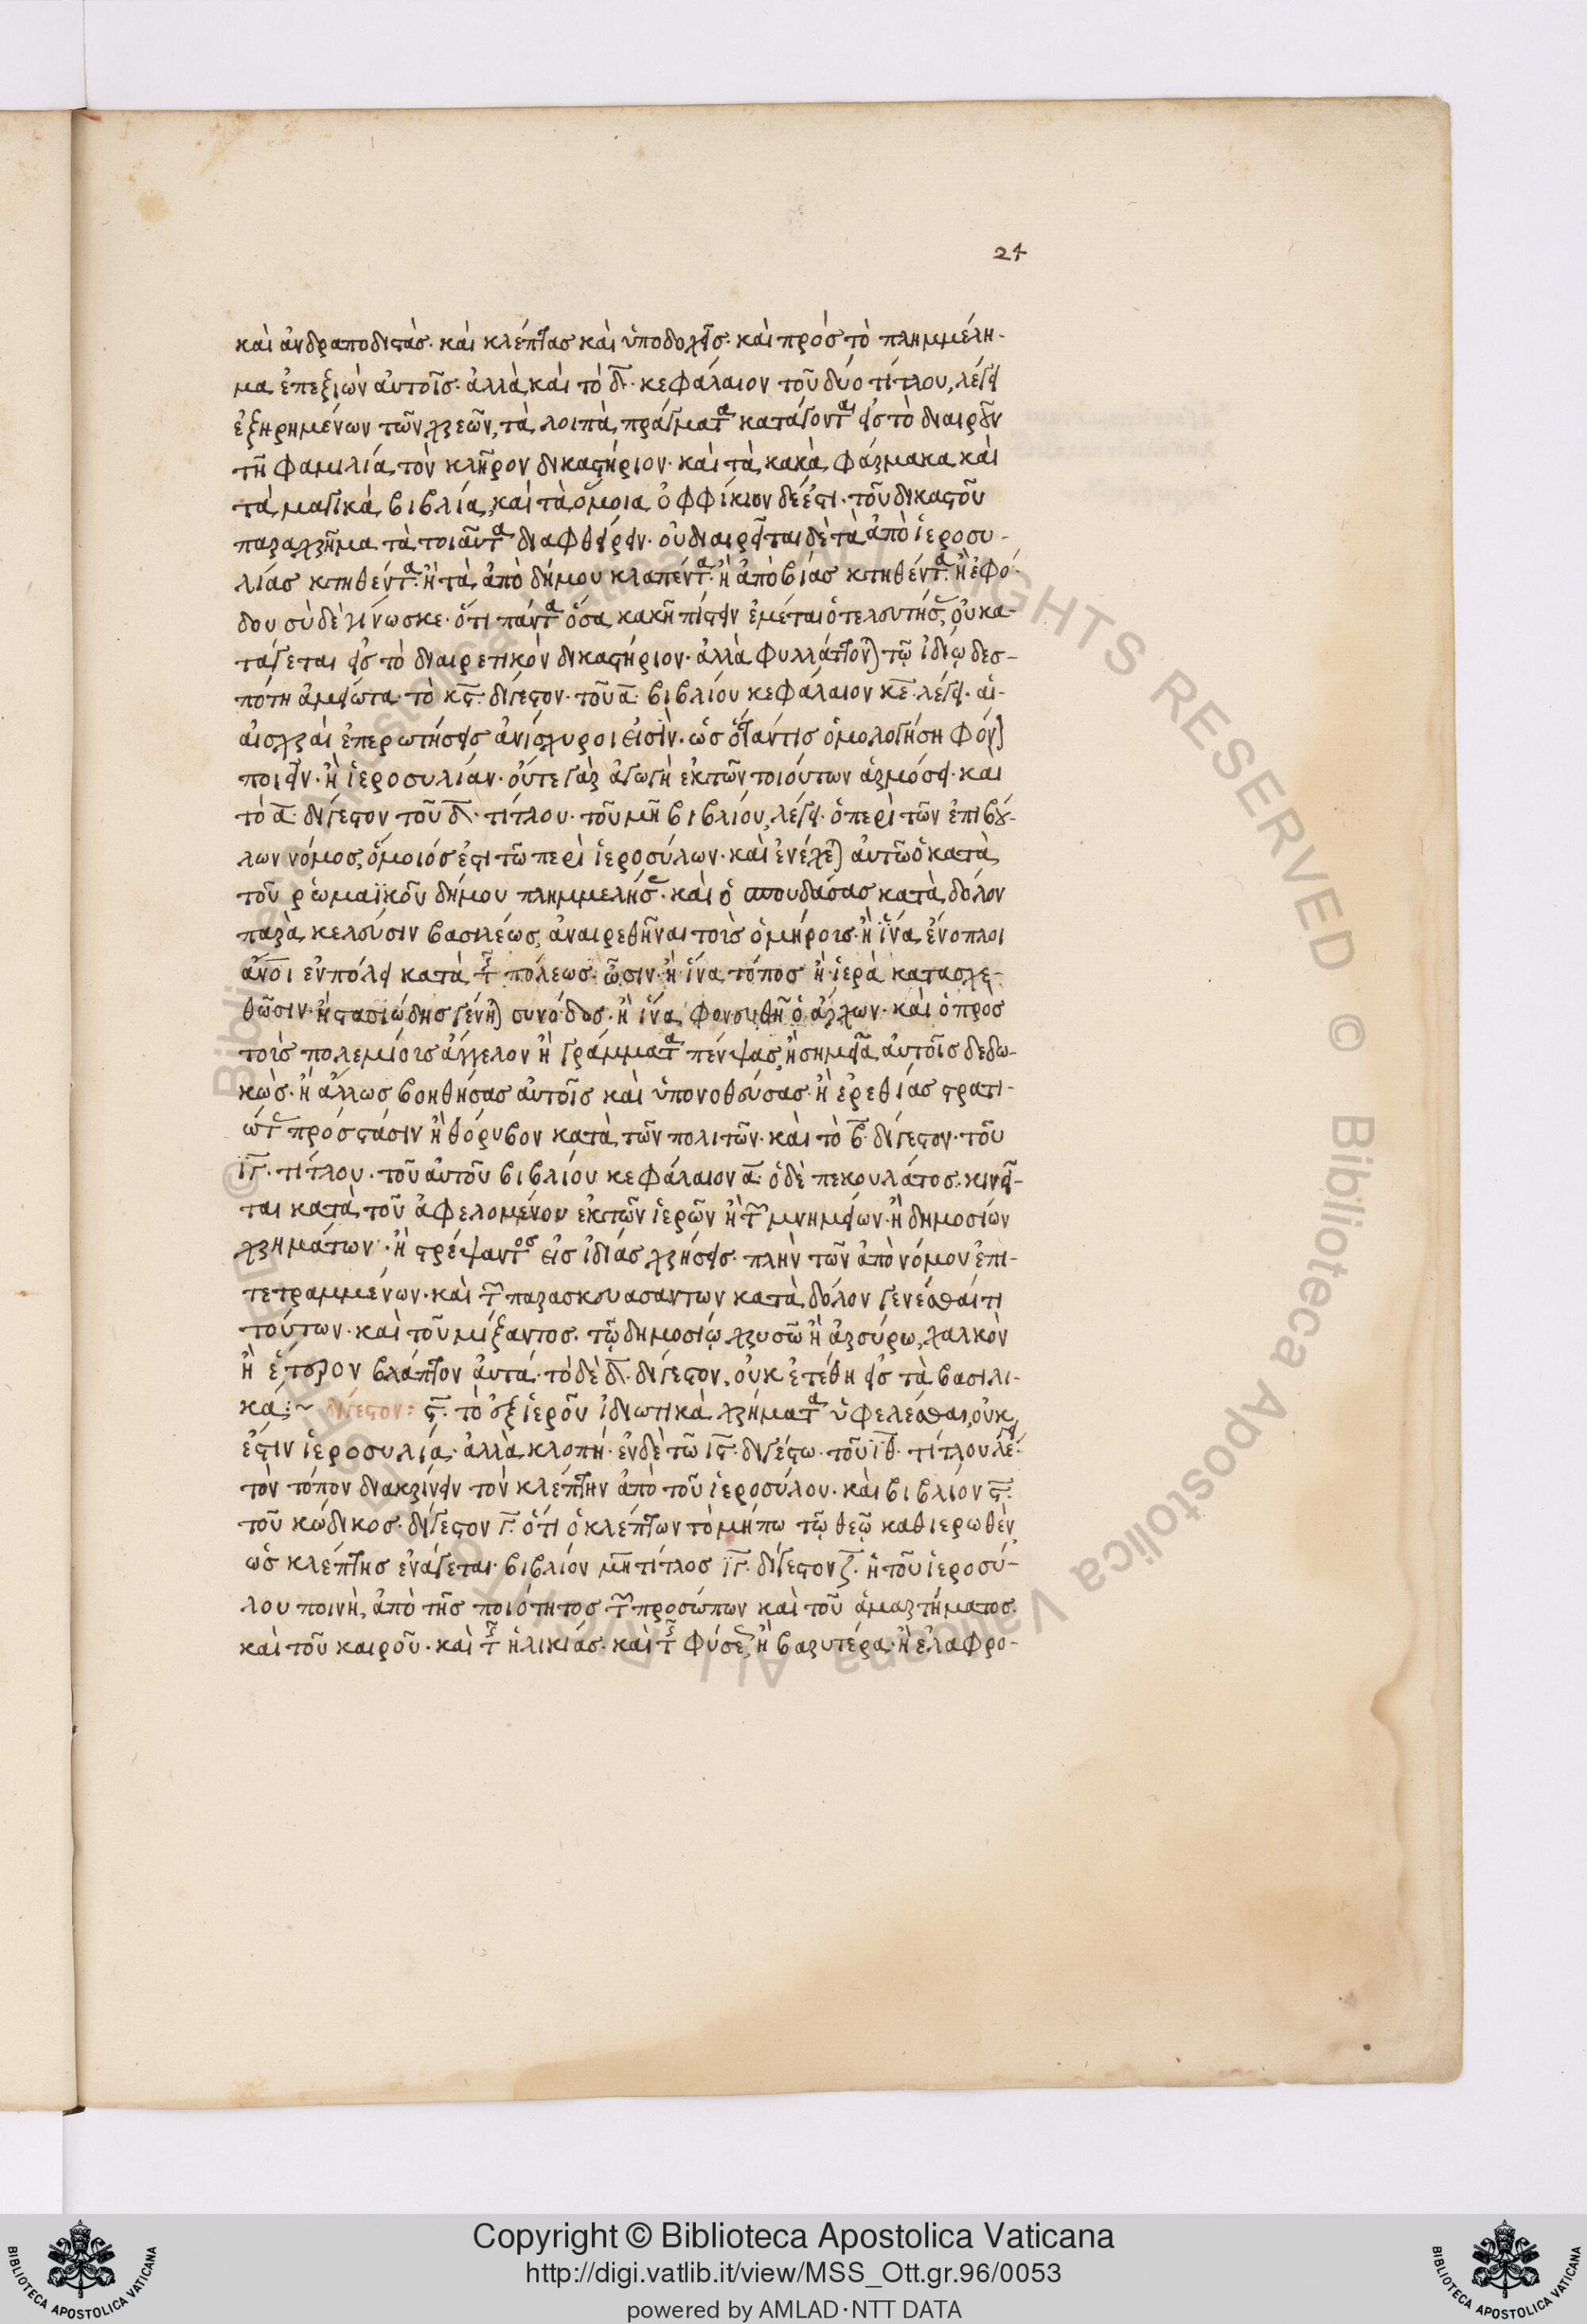 24
καὶ ἀνδραποδιστάς· καὶ κλέπτας καὶ ὑποδοχεῖς· καὶ πρὸς τὸ πλημμέλη-
μα ἐπεξιὼν αὐτοῖς· ἀλλὰ καὶ τὸ δ̅· κεφάλαιον τοῦ δύο τίτλου, λέγει
ἐξηρημένων τῶν χρεῶν, τὰ λοιπὰ πράγματα κατάγοντα εἰς τὸ διαιροῦν
τῆ φαμιλία τὸν κλῆρον δικαστήριον· καὶ τὰ κακὰ φάρμακα καὶ
τὰ μαγικὰ βιβλία, καὶ τὰ ὅμοια ὀφφίκιον δέ ἐστι· τοῦ δικαστοῦ
παραχρῆμα τὰ τοιαῦτα διαφθείρειν· οὐ διαιρεῖται δὲ τὰ ἀπὸ ἱεροσυ-
λίας κτηθέντα· ἢ τὰ ἀπὸ δήμου κλαπέντα· ἢ ἀπὸ βίας κτηθέντα· ἢ ἐφό-
δου σὺ δὲ γίνωσκε· ὅτι πάντα ὅσα κακῆ πίστει νέμεται ὁ τελευτήσας, οὐ κα-
τάγεται εἰς τὸ διαιρετικὸν δικαστήριον· ἀλλὰ φυλάττονται τῷ ἰδίῳ δεσ-
πότη ἀμείωτα· τὸ κς̅· δίγεστον· τοῦ α̅· βιβλίου κεφάλαιον κε̅· λέγει· αἱ-
αἰσχραὶ ἐπερωτήσεις ἀνίσχυροι εἰσὶν· ὡς ὅταν τις ὁμολογήση φόνον
ποιεῖν· ἢ ἱεροσυλίαν· οὔτε γὰρ ἀγωγὴ ἐκ τῶν τοιούτων ἁρμόσει· καὶ
τὸ α̅· δίγεστον τοῦ δ̅· τίτλου· τοῦ μη̅ βιβλίου, λέγει· ὁ περὶ τῶν ἐπιβού-
λων νόμος, ὅμοιός ἐστι τῶ περὶ ἱεροσύλων· καὶ ἐνέχεται αὐτῶ ὁ κατὰ
τοῦ ῥωμαϊκοῦ δήμου πλημμελήσας· καὶ ὁ σπουδάσας κατὰ δόλον
παρὰ κελεύσιν βασιλέως, ἀναιρεθῆναι τοῖς ὁμήροις· ἢ ἵνα ἔνοπλοι
ἄνοι ἐν πόλει κατὰ τῆς πόλεως ὦσιν· ἢ ἵνα τόπος ἢ ἱερὰ κατασχε-
θῶσιν· ἢ στασιώδης γένηται συνόδος· ἢ ἵνα φονευθῆ ὁ ἄρχων· καὶ ὁ πρὸς
τοῖς πολεμίοις ἄγγελον ἢ γράμματα πέμψας, ἢ σημεῖα αὐτοῖς δεδω-
κώς· ἢ ἄλλως βοηθήσας αὐτοῖς καὶ ὑπονοθεύσας· ἢ ἐρεθίσας στρατι-
ώτας πρὸς στάσιν ἢ θόρυβον κατὰ τῶν πολιτῶν· καὶ τὸ β̅· δίγεστον· τοῦ
ιγ̅· τίτλου· τοῦ αὐτοῦ βιβλίου κεφάλαιον α̅· ὁ δὲ πεκουλάτος· κινεῖ-
ται κατὰ τοῦ ἀφελομένου ἐκ τῶν ἱερῶν ἢ τῶν μνημείων· ἢ δημοσίων
χρημάτων· ἢ τρέψαντος εἰς ἰδίας χρήσεις· πλὴν τῶν ἀπὸ νόμου ἐπι-
τετραμμένων· καὶ τῶν παρασκευασάντων κατὰ δόλον γενέσθαί τι
τούτων· καὶ τοῦ μίξαντος· τῷ δημοσίῳ χρυσῶ ἢ ἀργύρω, χαλκὸν
ἢ ἕτερον βλάπτον αὐτά· τὸ δὲ δ̅· δίγεστον, οὐκ ἐτέθη εἰς τὰ βασιλι-
κά:~ δίγεστον: ς̅· τὸ ἐξ ἱεροῦ ἰδιωτικὰ χρήματα ὑφελέσθαι, οὐκ
ἔστιν ἱεροσυλία· ἀλλὰ κλοπή· ἐν δὲ τῶ ις̅· διγέστω· τοῦ ιθ̅· τίτλου λέγει
τὸν τόπον διακρίνειν τὸν κλέπτην ἀπὸ τοῦ ἱεροσύλου· καὶ βιβλίον ς̅·
τοῦ κώδικος· δίγεστον γ̅· ὅτι ὁ κλέπτων τὸ μήπω τῷ θεῷ καθιερωθὲν
ὡς κλέπτης ἐνάγεται· βιβλίον μη̅ τίτλος ιγ̅· δίγεστον ζ̅· ἡ τοῦ ἱεροσύ-
λου ποινὴ, ἀπὸ τῆς ποιότητος τῶν προσώπων καὶ τοῦ ἁμαρτήματος·
καὶ τοῦ καιροῦ· καὶ τῆς ἡλικίας· καὶ τῆς φύσεως, ἢ βαρυτέρα· ἢ ἐλαφρο-
Copyright © Biblioteca Apostolica Vaticana
http://digi.vatlib.it/view/MSS_Ott.gr.96/0053
powered by AMLAD·NTT DATA